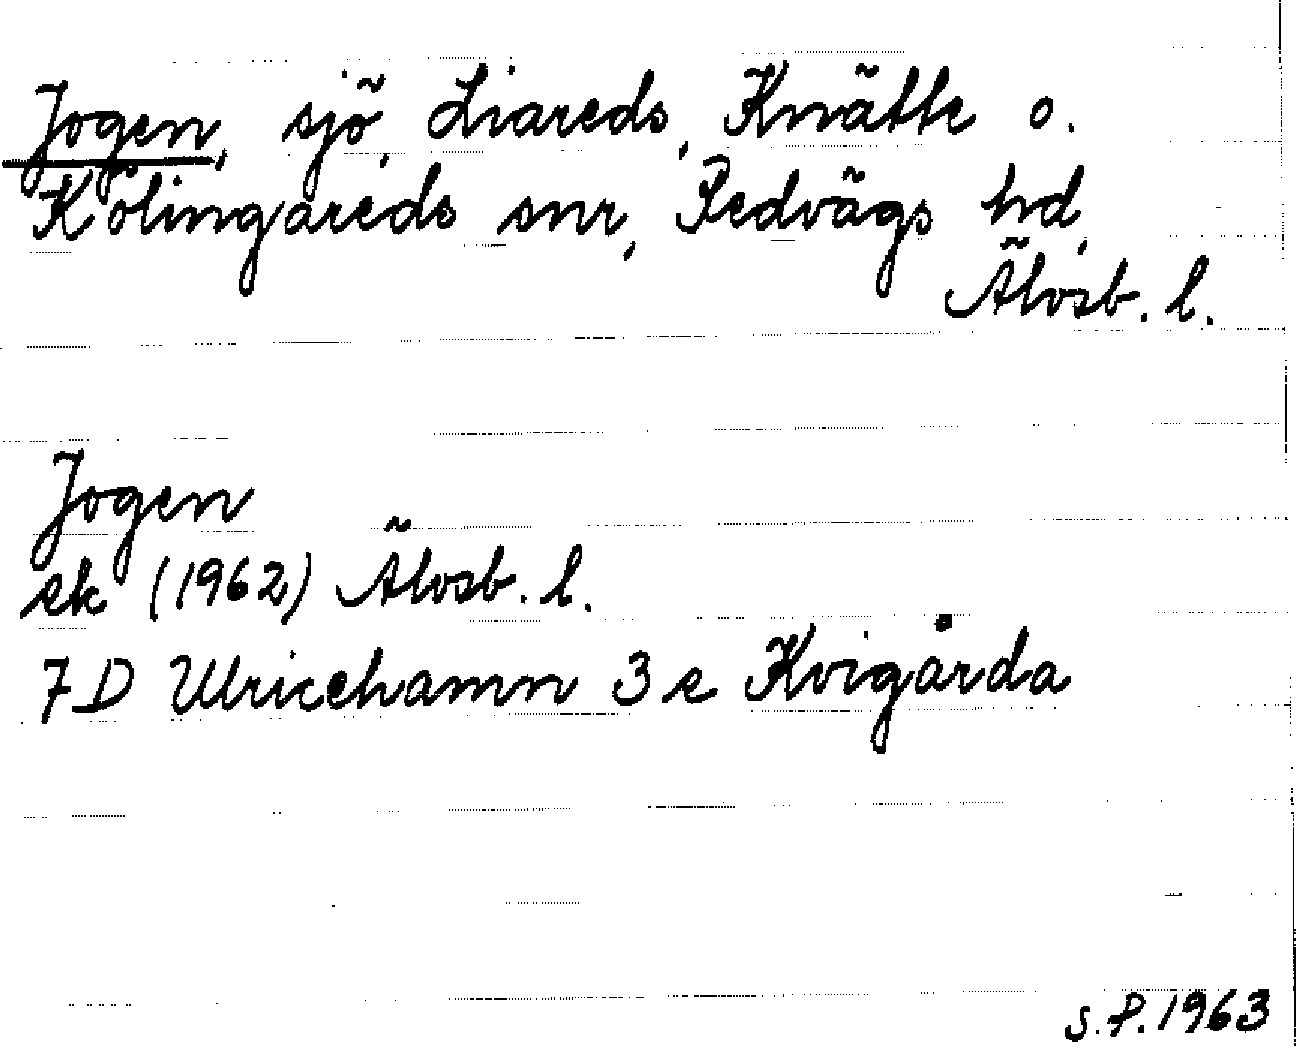 Jogen, sjö, Liareds, Knätte o.
Kölingareds snr, Redvägs hd,
Älvsb. l.
Jogen
ek (1962) Älvsb. l.
7D Ulricehamn 3e Kvigårda
S.P. 1963